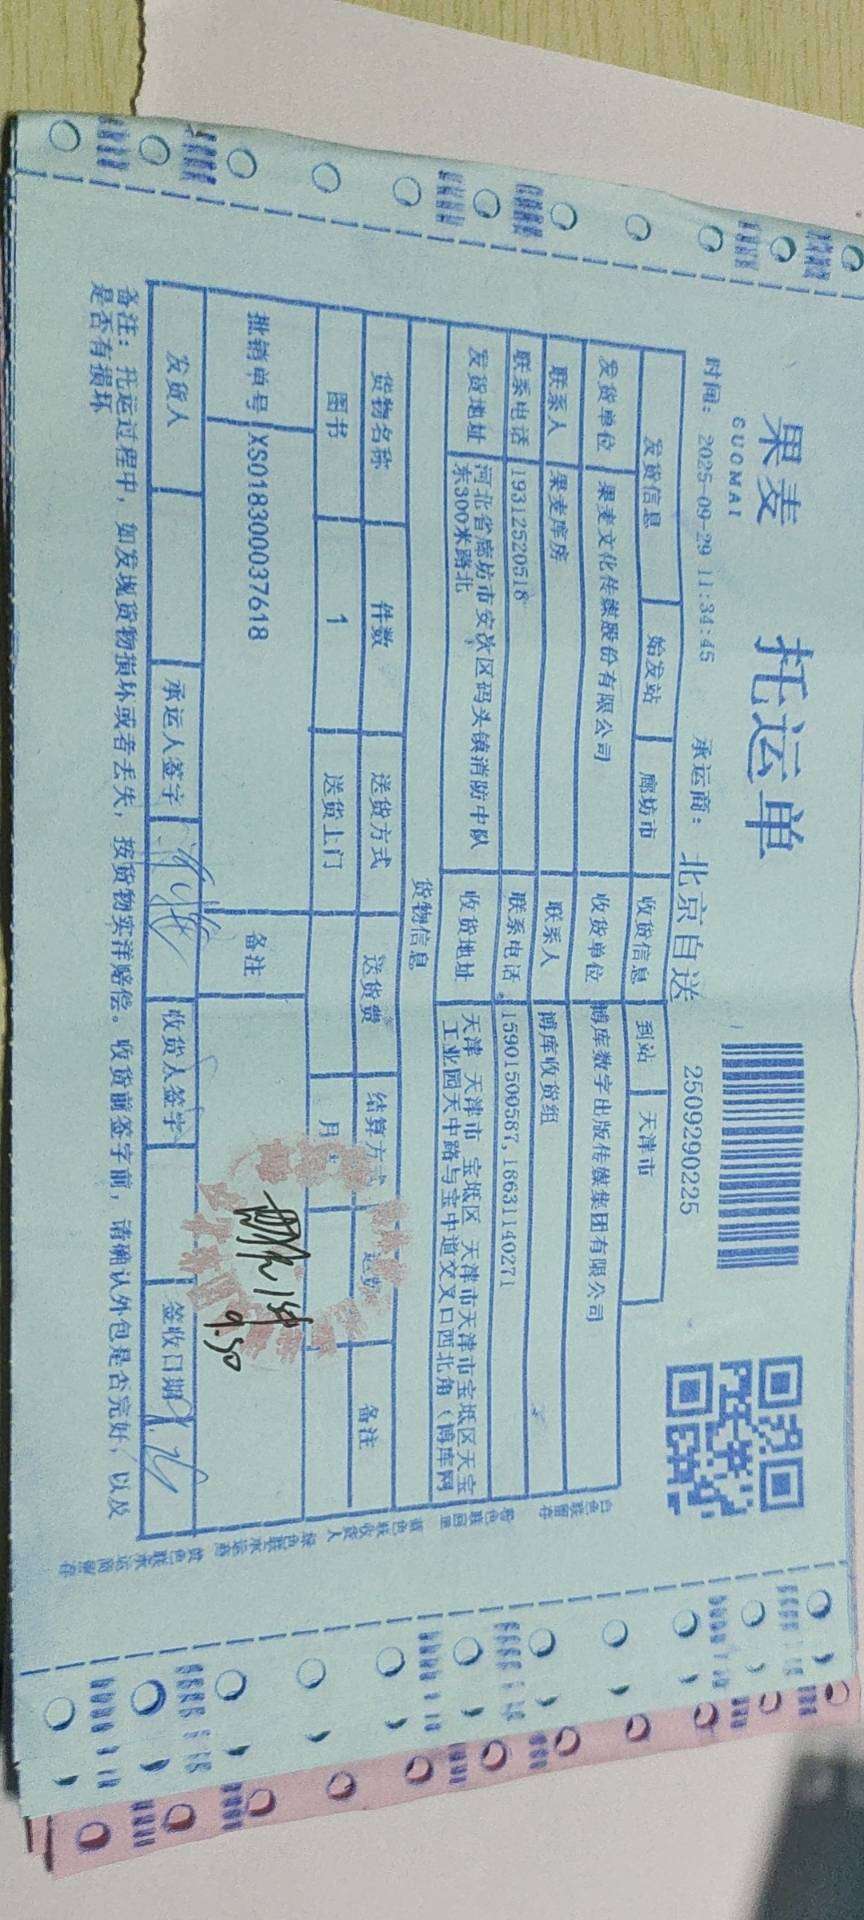 果麦
GUOMAI
托运单
时间：2025-09-29 11:34:45 承运商：北京自送 2509290225
发货信息 始发站 廊坊市 收货信息 到站 天津市
发货单位 果麦文化传媒股份有限公司 收货单位 博库数字出版传媒集团有限公司
联系人 果麦库房 联系人 博库收货组
联系电话 19312520518 联系电话 15901500587,18631140271
发货地址 河北省廊坊市安次区码头镇消防中队东300米路北 收货地址 天津 天津市 宝坻区 天津市天津市宝坻区天宝工业园天中路与宝中道交叉口西北角（博库网
货物信息
货物名称 件数 送货方式 送货费 结算方式 运费 备注
图书 1 送货上门 月
批销单号 XS018300037618 备注
9.30
发货人 承运人签字 收货人签字 签收日期
备注：托运过程中，如发现货物损坏或者丢失，按货物实洋赔偿。收货前签字前，请确认外包是否完好，以及
是否有损坏
白色联留存 粉色联回单 蓝色联收货人 绿色联承运商 黄色联承运商留存